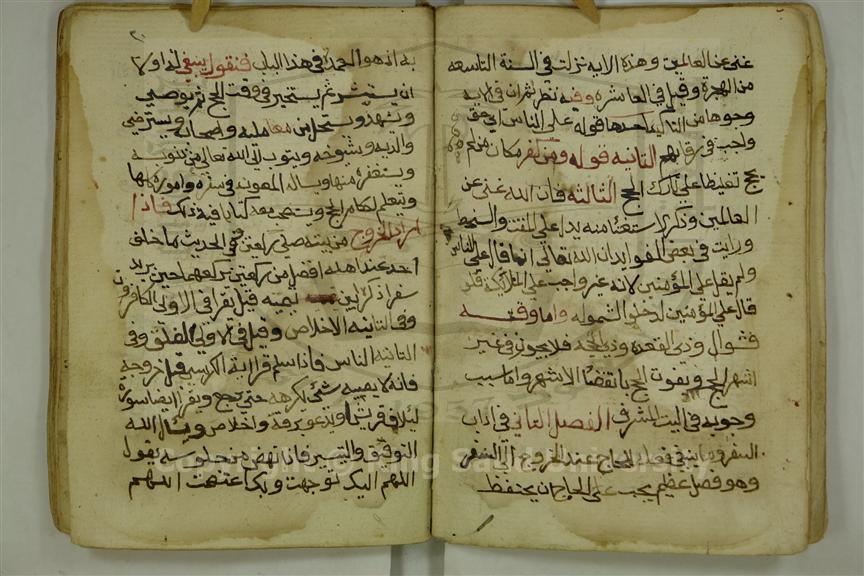 غنى عن العالمين وهذه الايه نزلت في السنة التاسعه
من الهجرة وقيل في العاشره وفيه نظر ثم ان في الايه
وجوها من التاكيد احدها قوله على الناس اي حق
واجب في رقابهم الثانيه قوله ومن كفر مكان من لم
يحج تغليظا على تارك الحج الثالثه فان الله غنى عن
العالمين وذكر الاستغنا منه يدل على المقت والسخط
ورايت في بعض الفوايد ان الله تعالى انما قال على الناس
ولم يقل على المؤمنين لانه غير واجب على الملائكة فلو
قال على المؤمنين لدخلوا لشموله واما وقته
فشوال وذى القعده وذى الحجه فلا يجوز في غير
اشهر الحج ويفوت الحج بانقضا الاشهر واما سبب
وجوبه في البيت المشرف الفصل الثاني في اداب
السفر وما ينبغي فعله للحاج عند الخروج الى السفر
وهو فصل عظيم يجب على الحاج ان يحتفظ
به اذ هو العمدة في هذا الباب فنقول ينبغي له اولا
ان يستشير ثم يستخير في وقت الحج ثم يوصي
ويشهد ويستحل من معامليه واصحابه ويسترضي
والديه وشيوخه ويتوب الى الله تعالى من ذنوبه
ويستغفره منها ويساله المعونه في سفره واموره كلها
ويتعلم احكام الحج ويستصحب معه كتابا فيه ذلك فاذا
اراد الخروج من بيته صلى ركعتين ففي الحديث ما خلف
احد عند اهله افضل من ركعتين يركعهما حين يريد
سفرا ذكر ابن تيميه قيل يقرا في الاولى الكافرون
وفي الثانيه الاخلاص وقيل في الاولى الفلق وفي
الثانيه الناس فاذا سلم قرا اية الكرسي قبل خروجه
فانه لا يصيبه شئ يكرهه حتى يرجع ويقرا ايضا سورة
لئلاف قريش ويدعو برقة واخلاص ويسال الله
التوفيق والتيسير فاذا نهض من جلوسه يقول
اللهم اليك توجهت وبك اعتصمت اللهم
Copyright © King Saud University
1957